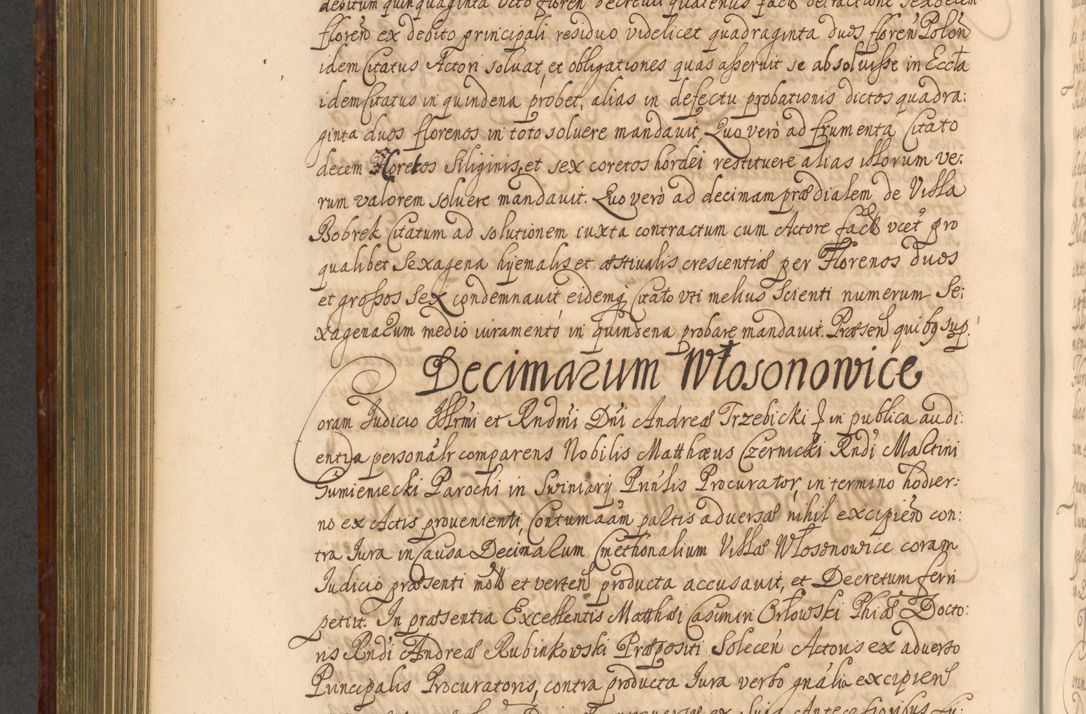 debitum quinquaginta octo floren decrevit quatenus fact detractione sexdecem
floren ex debito principali residuo videlicet quadraginta duos floren Polon
idem Citatus Actori soluat, et obligationes quas asseruit se absoluisse in Eccla
idem Citatus in quindena probet, alias in defectu probationis dictos quadra:
ginta duos florenos in toto soluere mandauit, Quo verò ad frumenta Citato
decem Coretos Siliginis, et sex coretos hordei restituere alias illorum ve:
rum valorem soluere mandauit. Quo verò ad decimam prædialem de Villa
Bobrek Citatum ad solutionem iuxta contractum cum Actore fact vcet pro
qualibet Sexagena hyemalis et æstiualis crescentiæ per Florenos duos
et grossos sex condemnauit eidemq Citato vti melius Scienti numerum Se:
xagenarum medio iuramento in quindena probare mandauit. Præsen quibq sup.
Decimarum Włosonowice
Coram Judicio Illrmi et Rndmi Dni Andreæ Trzebicki in publica audi:
entia personalr comparens Nobilis Matthæus Czernicki Rndi Martini
Gumieniecki Parochi in Swiniary Prinlis Procurator, in termino hodier:
no ex Actis provenienti, Contumaam partis adversæ nihil excipien con:
tra Jura in Causa Decimarum Cmethonalium Villæ Włosonowice coram
Judicio præsenti mot et verten producta accusauit, et Decretum ferri
petijt. In præsentia Excellentis Matthæi Casimiri Orłowski Phiæ Docto:
ris Rndi Andreæ Rubinkowski Præpositi Solecen Actoris ex adverso
Principalis Procuratoris, contra producta Jura verbo gnalia excipien